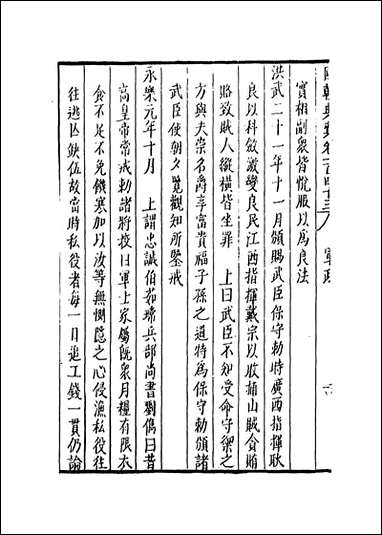 國朝典彙卷一百四十三 軍政
實相副衆皆悅服以爲良法
洪武二十一年十一月頒賜武臣保守勅時廣西指揮耿
良以科斂激變良民江西指揮戴宗以收捕山賊貪賄
賂致賊人縱橫皆坐罪 上曰武臣不知受命守禦之
方與夫崇名爵享富貴福子孫之道特爲保守勅頒諸
武臣使朝夕覽觀知所鑒戒
永樂元年十月 上謂忠誠伯茹瑺兵部尚書劉儁曰昔
高皇帝常戒勅諸將校曰軍士家屬既衆月糧有限衣
食不足不免饑寒加以汝等無憫隱之心侵漁私役往
往逃亡缺伍故當時私役者每一日追工錢一貫仍論